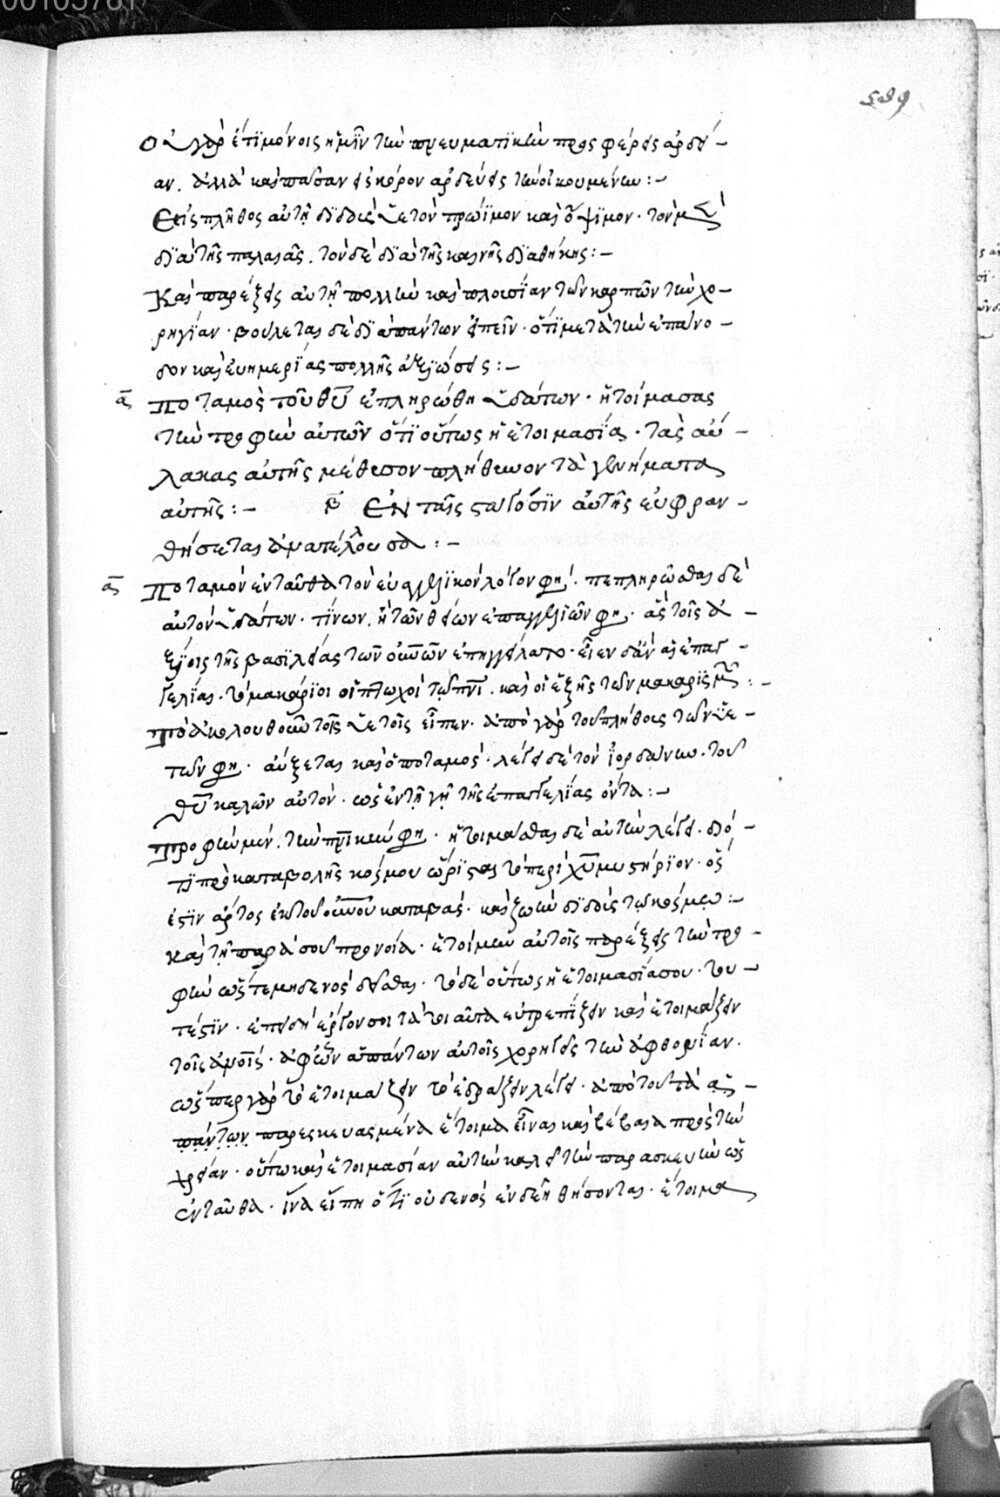 00103781
Οὐ γὰρ ἔτι μόνοις ἡμῖν τὴν πνευματικὴν προσφέρεις ἀρδεί-
αν. ἀλλὰ καὶ πᾶσαν εἰς κόρον ἀρδεύεις τὴν οἰκουμένην:-
Εἰς πλῆθος αὐτῇ διδοὺς ὑετὸν πρώϊμον καὶ ὄψιμον. τὸν μὲν
δι' αὐτῆς παλαιᾶς. τὸν δὲ δι' αὐτῆς καινῆς διαθήκης:-
Καὶ παρέξεις αὐτῇ πολλὴν καὶ πλουσίαν τῶν καρπῶν τὴν χο-
ρηγίαν. βούλεται δὲ δι' ἁπάντων εἰπεῖν. ὅτι μετὰ τὴν ἐπάνο-
δον καὶ εὐημερίας πολλῆς ἀξιώσεις:-
α Ποταμὸς τοῦ θυ ἐπληρώθη ὑδάτων. ἡτοίμασας
τὴν τροφὴν αὐτῶν ὅτι οὕτως ἡ ἑτοιμασία. τὰς αὔ-
λακας αὐτῆς μέθυσον πλήθυνον τὰ γεννήματα
αὐτῆς:- β Ἐν ταῖς σταγόσιν αὐτῆς εὐφραν-
θήσεται ἀνατέλλουσα:-
α Ποταμὸν ἐνταῦθα τὸν εὐαγγελικὸν λόγον φησί. πεπληρῶσθαι δὲ
αὐτὸν ὑδάτων. τίνων. ἢ τῶν θείων ἐπαγγελιῶν φησι. ἃς τοῖς ἀ-
ξίοις τῆς βασιλείας τῶν οὐνῶν ἐπηγγείλατο. εἶεν δ' ἂν αἱ ἐπαγ-
γελίαι. τὸ μακάριοι οἱ πτωχοὶ τῷ πνι. καὶ οἱ ἑξῆς τῶν μακαρισμῶν:-
Τὸ ἀκόλουθον τοῖς ὑετοῖς εἶπεν. ἀπὸ γὰρ τοῦ πλήθους τῶν ὑε-
τῶν φησι. αὔξεται καὶ ὁ ποταμός. λέγει δὲ τὸν ἰορδάνην. τοῦ
θυ καλῶν αὐτόν. ὡς ἐν τῇ γῇ τῆς ἐπαγγελίας ὄντα:-
Τροφὴν μέν. τὴν πνικὴν φησι. ἡτοιμάσθαι δὲ αὐτὴν λέγει. διό-
τι πρὸ καταβολῆς κόσμου ὥρισται τὸ περὶ χυ μυστήριον. ὅς
ἐστιν ἄρτος ἐκ τοῦ οὐνοῦ καταβάς. καὶ ζωὴν διδοὺς τῷ κόσμῳ:-
Καὶ τῇ παρὰ σοῦ προνοίᾳ. ἑτοίμην αὐτοῖς παρέξεις τὴν τρο-
φὴν ὥστε μηδενὸς δεῖσθαι. τὸ δὲ οὕτως ἡ ἑτοιμασία σου. του-
τέστιν. ἐπειδὴ ἔργον σοι τὰ τοιαῦτα εὐτρεπίζειν καὶ ἑτοιμάζειν
τοῖς ἀνοις. ἀφ' ὧν ἁπάντων αὐτοῖς χορηγεῖς τὴν ἀφθονίαν.
ὥσπερ γὰρ τὸ ἑτοιμάζειν τὸ ἑδράζειν λέγει. ἀπὸ τοῦ τὰ ἅ-
παντων παρεσκευασμένα ἕτοιμα εἶναι καὶ βέβαια πρὸς τὴν
χρείαν. οὕτω καὶ ἑτοιμασίαν αὐτὴν καλεῖ τὴν παρασκευὴν ὡς
ἐνταῦθα. ἵνα εἴπῃ ὅτι οὐδενὸς ἐνδεηθήσονται. ἕτοιμα